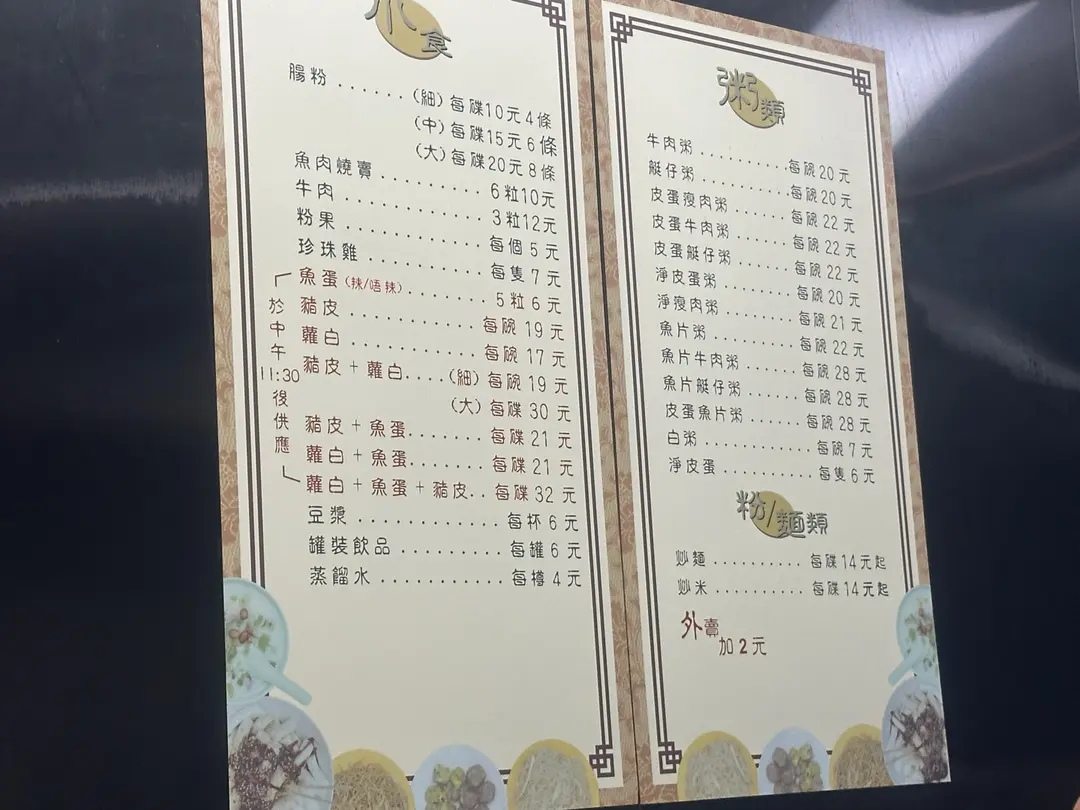 小食
腸粉 ...... (細) 每碟10元4條
(中) 每碟15元6條
(大) 每碟20元8條
魚肉燒賣 ......... 6粒10元
牛肉 ............ 3粒12元
粉果 ............ 每個5元
珍珠雞 .......... 每隻7元
魚蛋 (辣/唔辣) ........ 5粒6元
豬皮 ........... 每碗19元
蘿白 ........... 每碗17元
豬皮+蘿白.... (細) 每碗19元
(大) 每碟30元
豬皮+魚蛋....... 每碟21元
蘿白+魚蛋....... 每碟21元
蘿白+魚蛋+豬皮.. 每碟32元
於中午11:30後供應
豆漿 ............ 每杯6元
罐裝飲品 ......... 每罐6元
蒸餾水 ........... 每樽4元
粥類
牛肉粥 .......... 每碗20元
艇仔粥 .......... 每碗20元
皮蛋瘦肉粥 ...... 每碗22元
皮蛋牛肉粥 ...... 每碗22元
皮蛋艇仔粥 ...... 每碗22元
淨皮蛋粥 ........ 每碗20元
淨瘦肉粥 ........ 每碗21元
魚片粥 .......... 每碗22元
魚片牛肉粥 ...... 每碗28元
魚片艇仔粥 ...... 每碗28元
皮蛋魚片粥 ...... 每碗28元
白粥 ........... 每碗7元
淨皮蛋 .......... 每隻6元
粉/麵類
炒麵 .......... 每碟14元起
炒米 .......... 每碟14元起
外賣
加2元